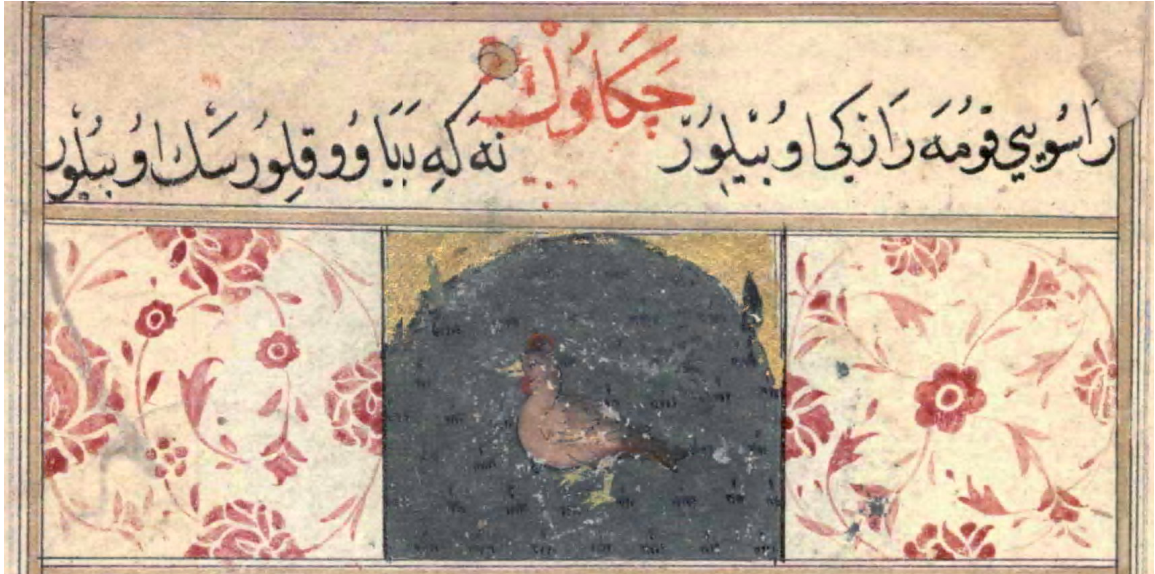 چَكَاوُكْ
رَاسُويىِ قوُمَه رَازكِى اوُ بيِلوُرْ نَه كَهِ بَبَاوُو قلِوُر سَنْك اوُ بيِلوُر